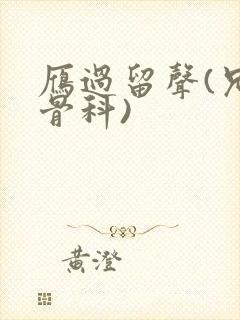 雁過留聲(兄
骨科)
黃澄